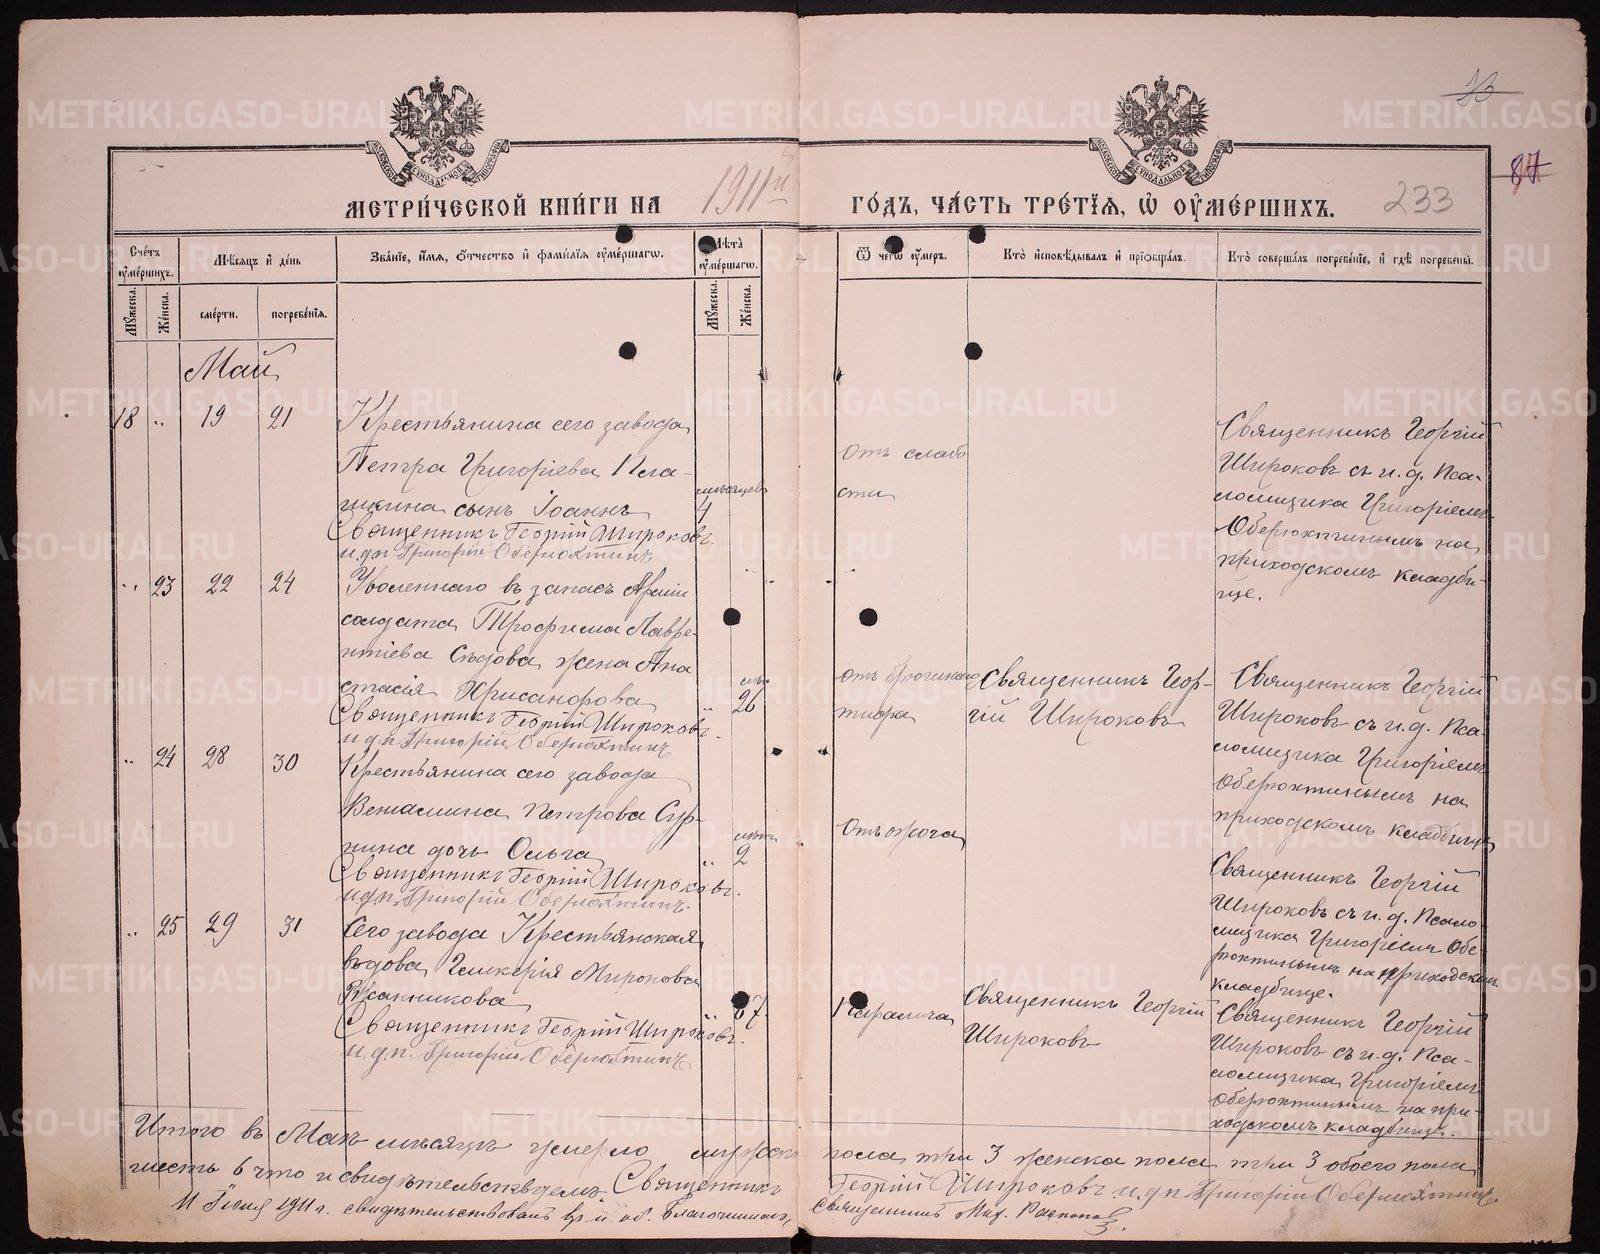 33
87
МЕТРИ́ЧЕСКОЙ КНИ́ГИ НА 1911й ГО́ДЪ, ЧА́СТЬ ТРЕ́ТІѦ, Ѡ ОУМЕ́РШИХЪ.
233
Сче́тъ оуме́ршихъ.
Мѣсѧцъ и де́нь
Зва́ніе, и́мѧ, о́тчество и фами́ліѧ оуме́ршагѡ.
Лѣта̀ оуме́ршагѡ.
Ѿ чегѡ̀ оу́меръ.
Кто̀ исповѣ́дывалъ и пріѡбща́лъ.
Кто̀ соверша́лъ погребе́ніе, и гдѣ̀ погребе́ны.
Му́жеска.
Же́нска.
сме́рти.
погребе́ніѧ.
Му́жеска.
Же́нска.
Май
18 „ 19 21
Крестьянина сего завода
Петра Григоріева
сынъ Іоаннъ
мѣсяцев
4
Священникъ Георгій Широковъ.
и.д.п. Григорій Оберюхтинъ
отъ слабо
сти
Священникъ Георгій
Широковъ съ и. д. Пса-
ломщика Григоріемъ
Оберюхтинымъ на
приходскомъ кладби-
ще.
„ 23 22 24
Уволеннаго въ запасъ Арміи
солдата Трофима Лавре-
нтіева Сѣдова жена Ана
стасія Хрисанфова
26
Священникъ Георгій Широковъ.
и.д.п. Григорій Оберюхтинъ
отъ брюшнаго
тифа
Священникъ Геор-
гій Широковъ
Священникъ Георгій
Широковъ съ и. д. Пса-
ломщика Григоріемъ
Оберюхтинымъ на
приходскомъ кладбище
„ 24 28 30
Крестьянина сего завода
Веніамина Петрова Сур-
нина дочь Ольга
„ 2
Священникъ Георгій Широковъ.
и.д.п. Григорій Оберюхтинъ.
Отъ ожога
Священникъ Георгій
Широковъ съ и. д. Псало
мщика Григоріемъ Обе-
рюхтинымъ на приходском
кладбище.
„ 25 29 31
Сего завода Крестьянская
вдова Гликерія Миронова
87
Священникъ Георгій Широковъ.
и.д.п. Григорій Оберюхтинъ
Паралича
Священникъ Георгій
Широковъ
Священникъ Георгій
Широковъ съ и. д. Пса-
ломщика Григоріемъ
Оберюхтинымъ на при-
ходскомъ кладбище.
Итого въ Маѣ мѣсяцѣ умерло мужеск пола три 3 женска пола три 3 обоего пола
шесть 6 что и свидѣтельствуемъ. Священникъ Георгій Широковъ и.д.п. Григорій Оберюхтинъ
11 1911 г. свидѣтельствовалъ вр. и. об. Благочиннаго, Священникъ